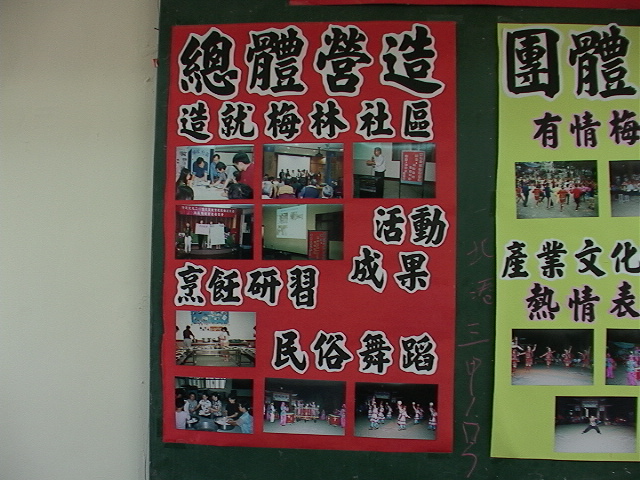 總體營造
造就梅林社區
活動
成果
烹飪研習
民俗舞蹈
團體
有情梅
產業文化
熱情表